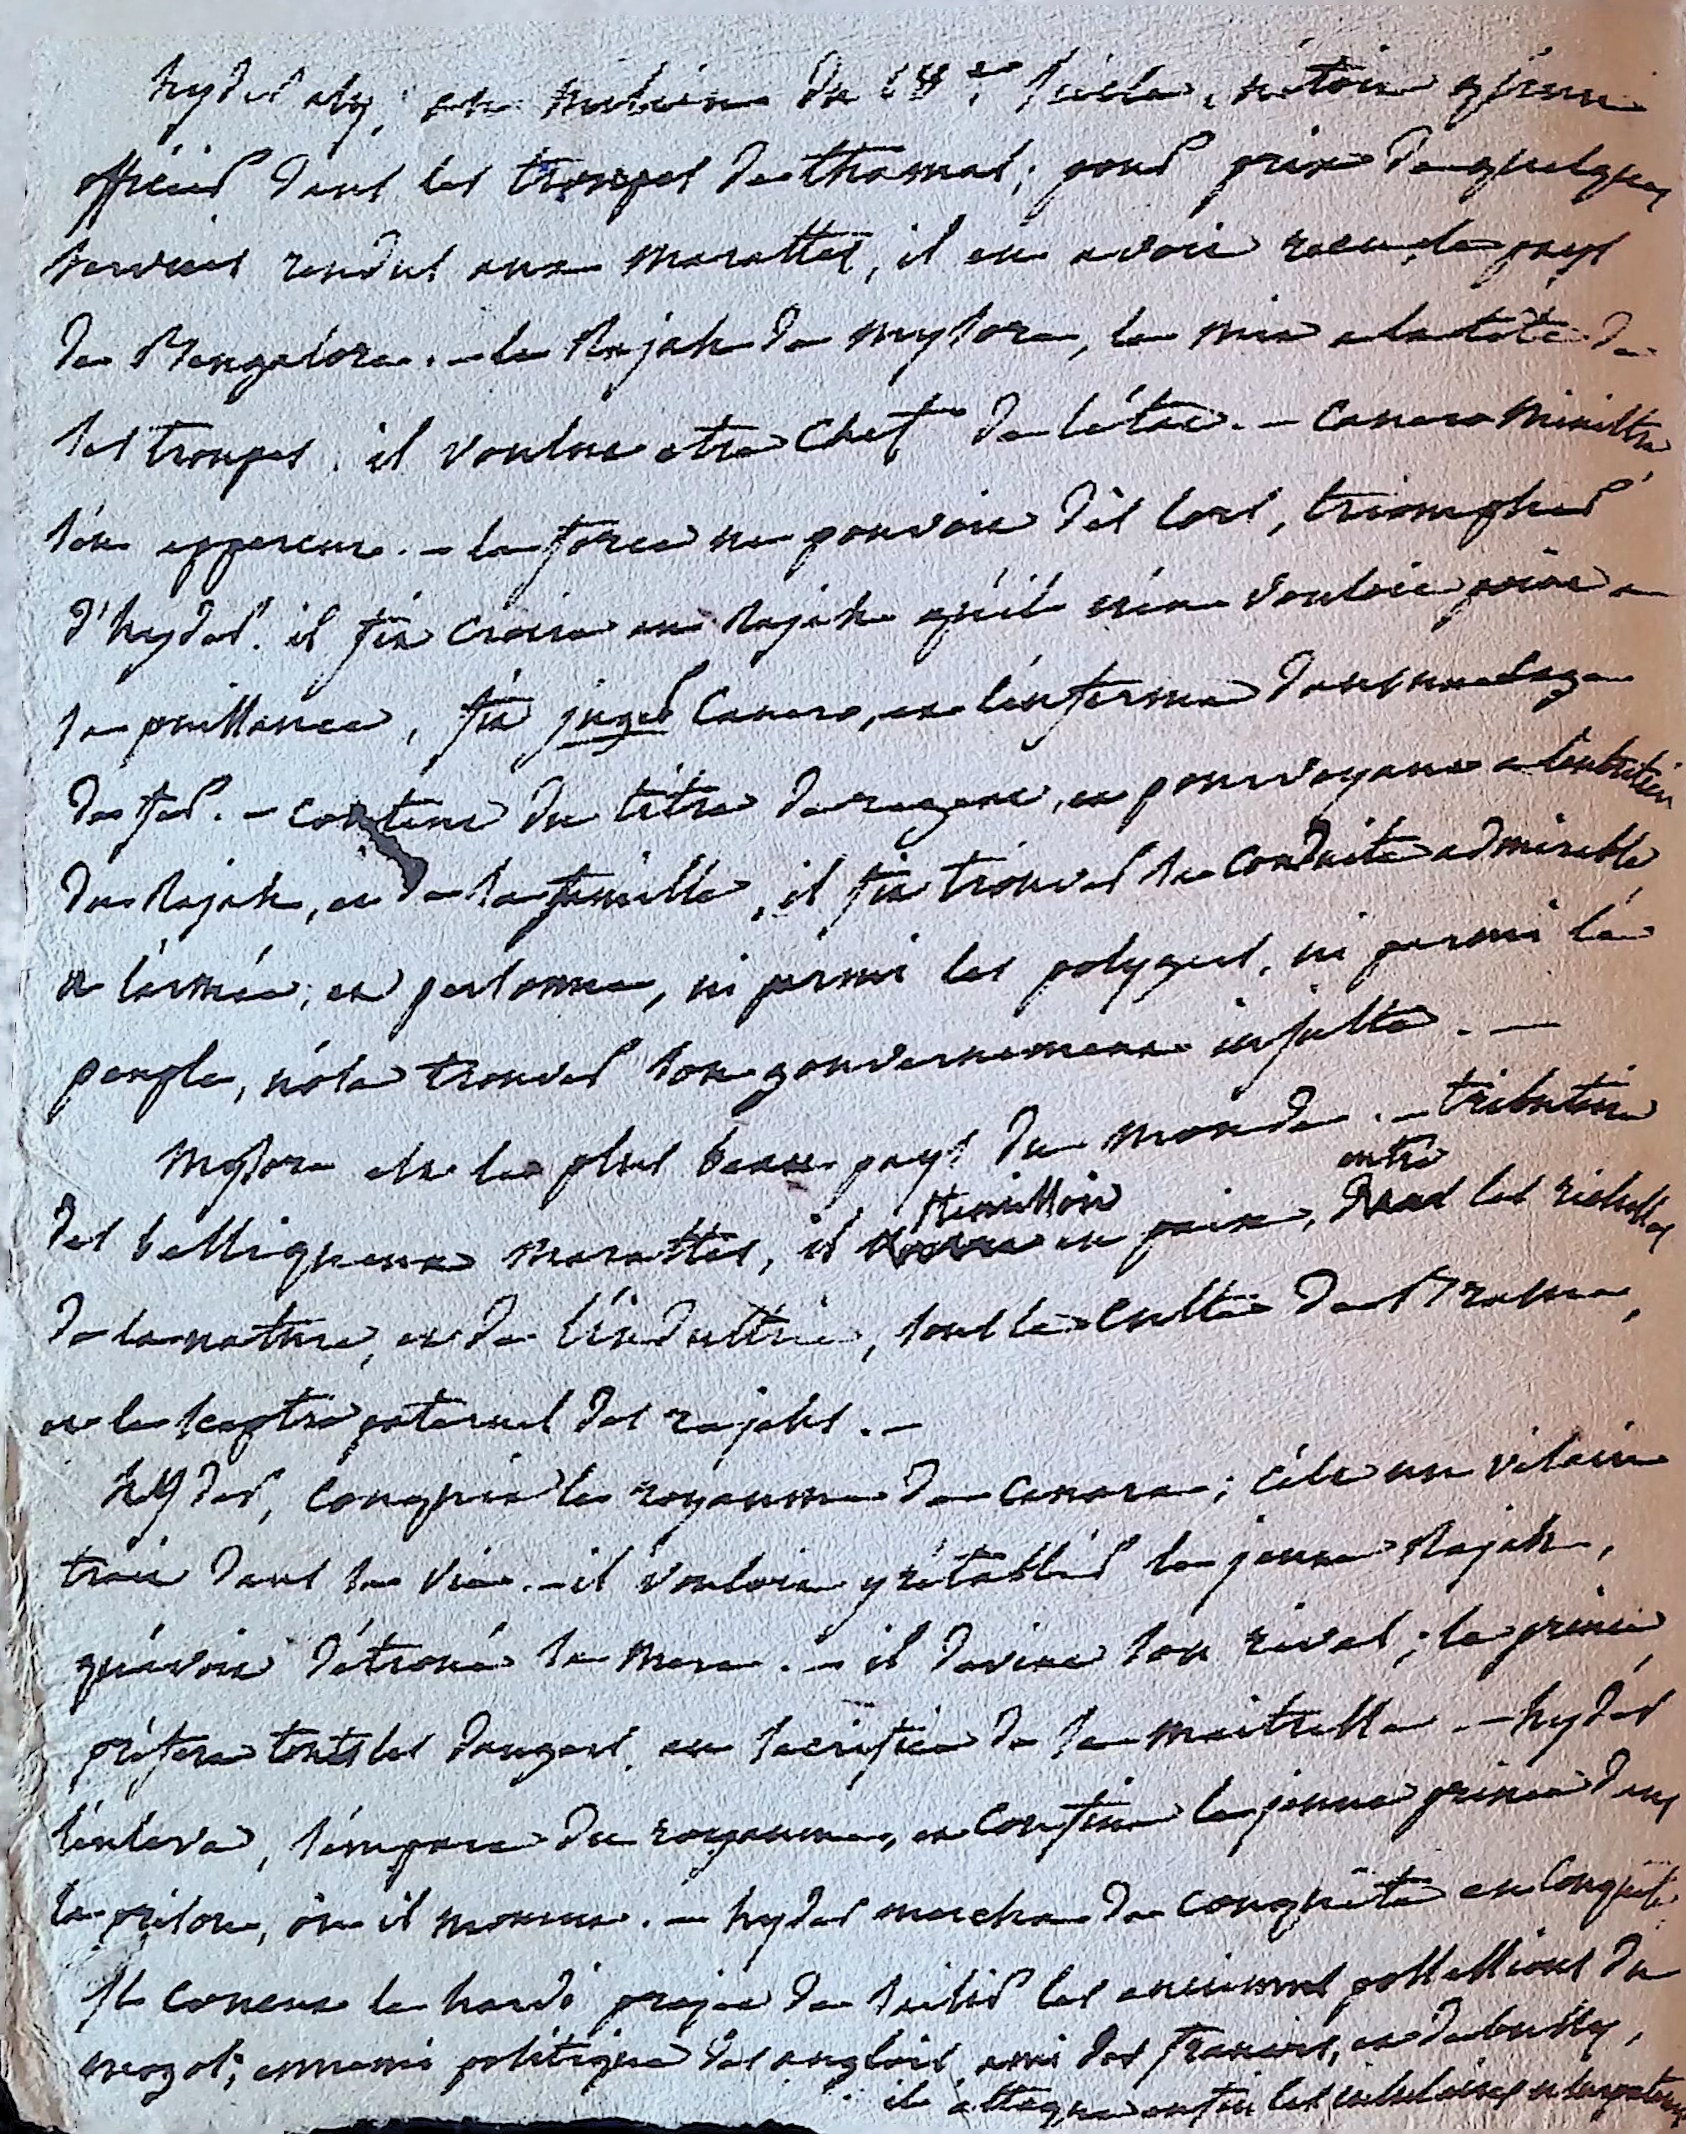 hyder aly, au milieu du 18.e siècle, n'étoit qu'un
officier dans les troupes de thamas; pour prix de quelques
services rendus aux marattes, il en avoit recu le pays
de Mengalore. - le Rajah de mysore, le mit a la tête de
ses troupes. il voulut etre chef de l'état. - Canero Ministre
s'en apperçut. - la force ne pouvoit dès lors, triompher
d'hyder. il fit croire au Rajah qu'il n'en vouloit point a
sa puissance, fit juger Canero, et l'enferma dans une cage
de fer. - content du titre de regent, en pourvoyant a l'entretien
du Rajah, et de sa famille, il fit trouver sa conduite admirable
a l'armée; et personne, ni parmi les polygars, ni parmi le
peuple, n'osa trouver son gouvernement injuste. -
Mysore est le plus beau pays du monde. - tributaire
des belliqueux marattes, il réunissoit en paix, entre les richesses
de la nature, et de l'industrie, sous le culte de Brama,
et le sceptre paternel des rajahs. -
hyder, conquit le royaume de canara; c'est un vilain
trait dans sa vie. - il vouloit y rétablir le jeune Rajah,
qu'avoit détroné sa mere. - il devint son rival; le prince
préfera tous les dangers, au sacrifice de sa maitresse. - hyder
l'enleva, s'empara du royaume, et confina le jeune prince dans
la prison, où il mourut. - hyder marcha de conquête en conquête
Il concut le hardi projet de saisir les anciennes possessions du
mogol; ennemi politique des anglois, ami des francois, et de bussy,
il attaqua enfin les insulaires usurpateurs